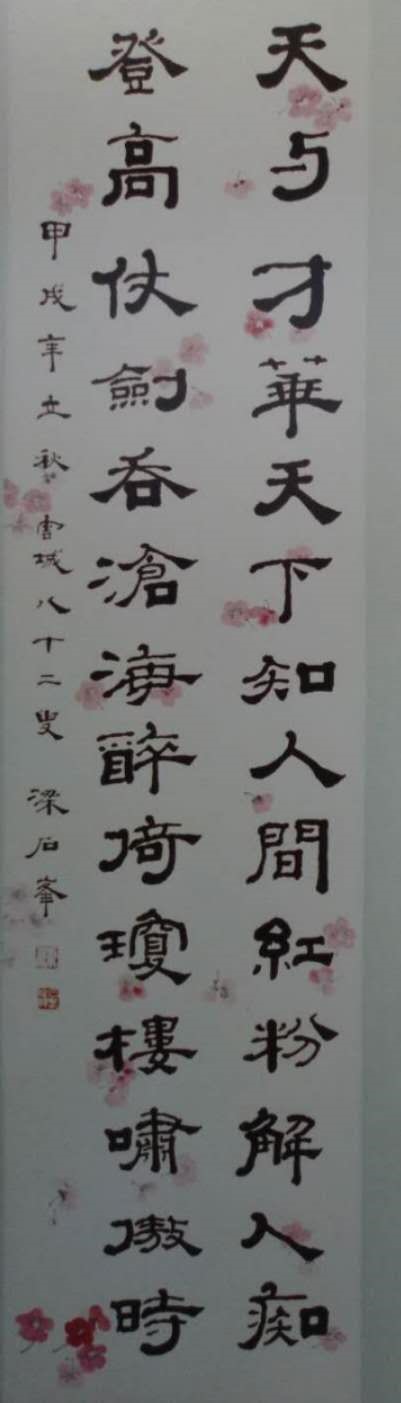 天与才華天下知人間紅粉解人痴
登高仗劍吞滄海醉倚瓊樓嘯傲時
甲戌年立秋雪城八十二叟 梁石峯